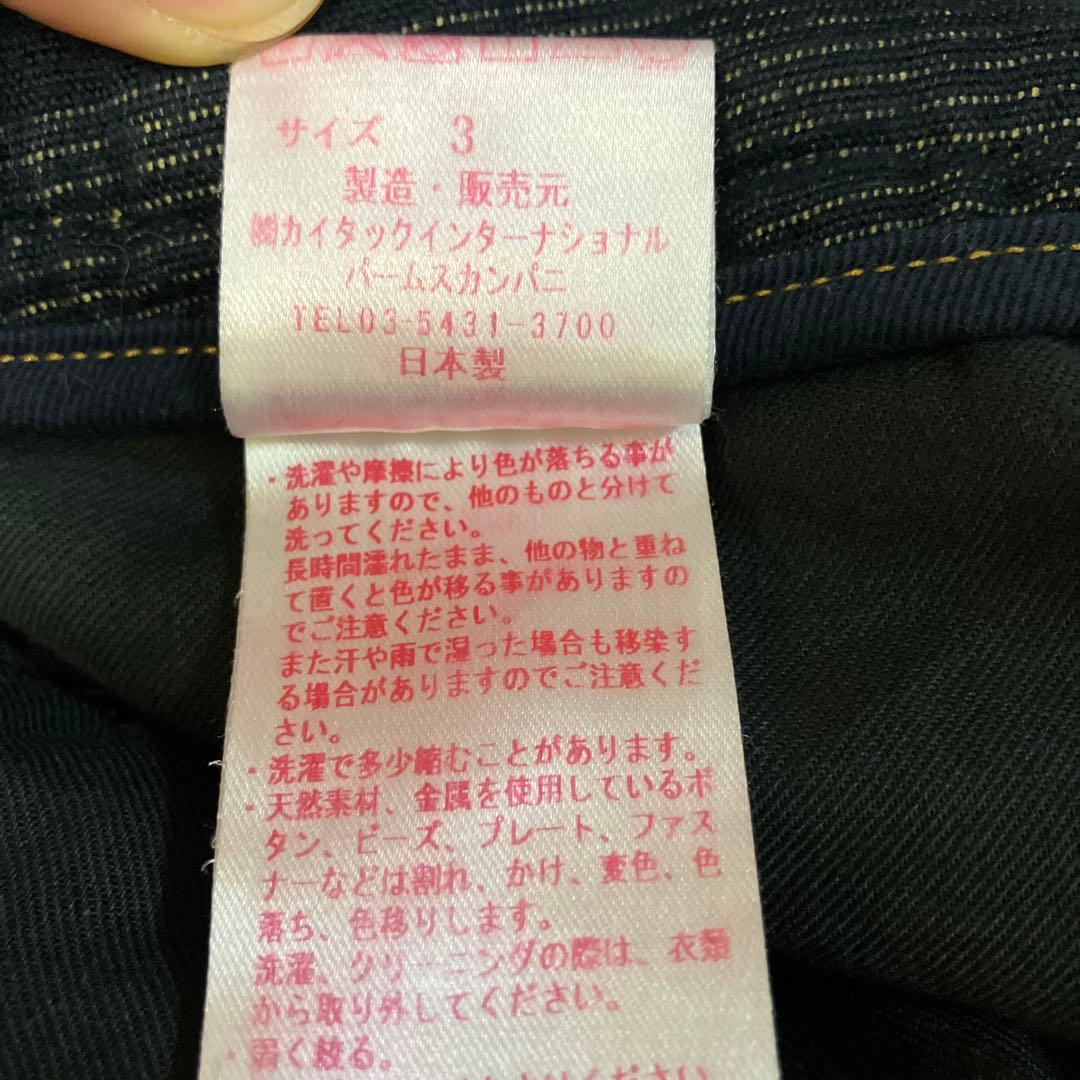 サイズ 3
製造・販売元
㈱カイタックインターナショナル
パームスカンパニ
TEL03-5431-3700
日本製
・洗濯や摩擦により色が落ちる事が
ありますので、他のものと分けて
洗ってください。
長時間濡れたまま、他の物と重ね
て置くと色が移る事がありますの
でご注意ください。
また汗や雨で湿った場合も移染す
る場合がありますのでご注意くだ
さい。
・洗濯で多少縮むことがあります。
・天然素材、金属を使用しているボ
タン、ビーズ、プレート、ファス
ナーなどは割れ、かけ、変色、色
落ち、色移りします。
洗濯、クリーニングの際は、衣類
から取り外してください。
・弱く絞る。